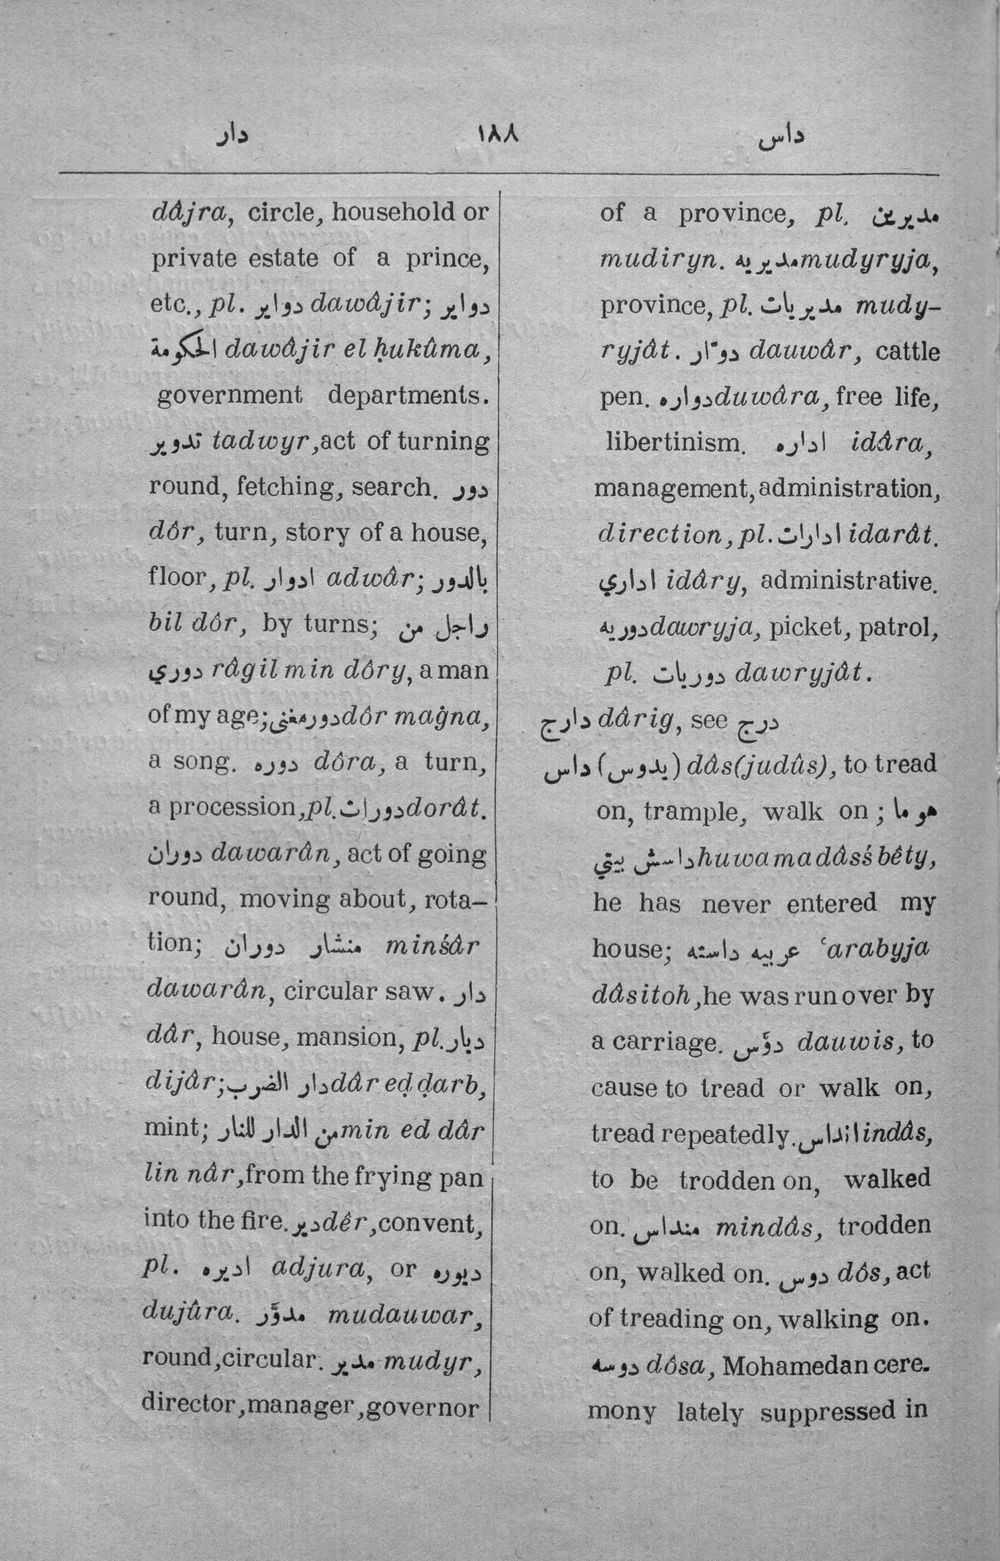 دار ١٨٨ داس
dâjra, circle, household or
private estate of a prince,
etc., pl. دواير dawâjir; دواير
الحكومة dawâjir el ḥukûma,
government departments.
تدوير tadwyr, act of turning
round, fetching, search. دور
dôr, turn, story of a house,
floor, pl. ادوار adwâr; بالدور
bil dôr, by turns; راجل من
دوري râgil min dôry, a man
of my age; دور مغنى dôr maġna,
a song. دوره dôra, a turn,
a procession, pl. دورات dorât.
دوران dawarân, act of going
round, moving about, rota-
tion; منشار دوران minśâr
dawarân, circular saw. دار
dâr, house, mansion, pl. ديار
dijâr; دار الضرب dâr eḍ ḍarb,
mint; من الدار للنار min ed dâr
lin nâr, from the frying pan
into the fire. دير dêr, convent,
pl. اديره adjura, or ديوره
dujûra. مدوّر mudauwar,
round, circular. مدير mudyr,
director, manager, governor
of a province, pl. مديرين
mudiryn. مديريه mudyryja,
province, pl. مديريات mudy-
ryjât. دوّار dauwâr, cattle
pen. دواره duwâra, free life,
libertinism. اداره idâra,
management, administration,
direction, pl. ادارات idarât.
اداري idâry, administrative.
دوريه dawryja, picket, patrol,
pl. دوريات dawryjât.
دارج dârig, see درج
داس (يدوس) dâs (judûs), to tread
on, trample, walk on; هو ما
داسش بيتي huwa ma dâsś bêty,
he has never entered my
house; عربيه داسته ʿarabyja
dâsitoh, he was run over by
a carriage. دوّس dauwis, to
cause to tread or walk on,
tread repeatedly. انداس indâs,
to be trodden on, walked
on. منداس mindâs, trodden
on, walked on. دوس dôs, act
of treading on, walking on.
دوسه dôsa, Mohamedan cere-
mony lately suppressed in